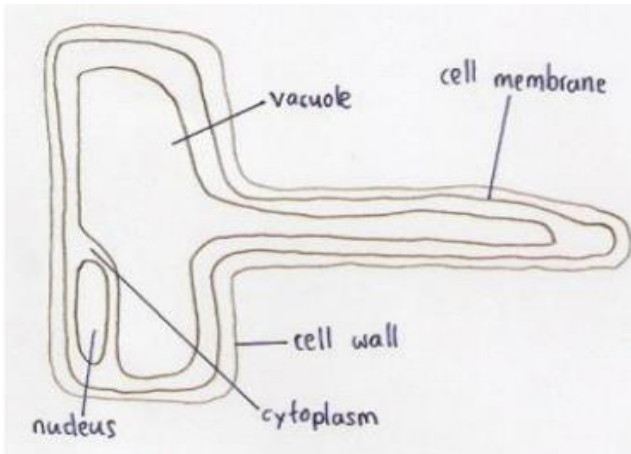 vacuole
cell membrane
cell wall
cytoplasm
nucleus